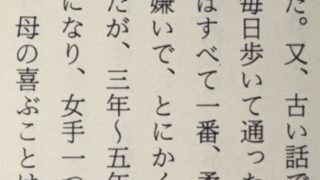 た。又、古い話で
毎日歩いて通った
はすべて一番、柔
嫌いで、とにかく
たが、三年～五年
になり、女手一つ
母の喜ぶことは